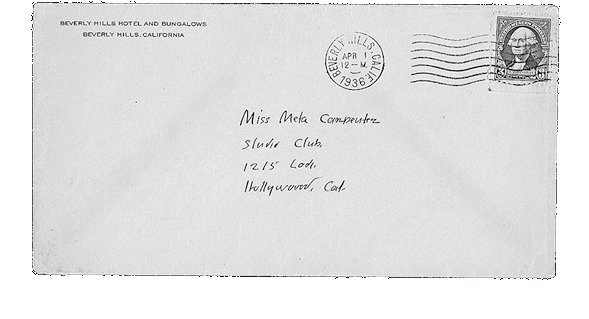 BEVERLY HILLS HOTEL AND BUNGALOWS
BEVERLY HILLS, CALIFORNIA
BEVERLY HILLS, CALIF.
APR 1
12 - M.
1936
3 3
Miss Meta Carpenter
Studio Club,
1215 Lodi,
Hollywood, Cal.